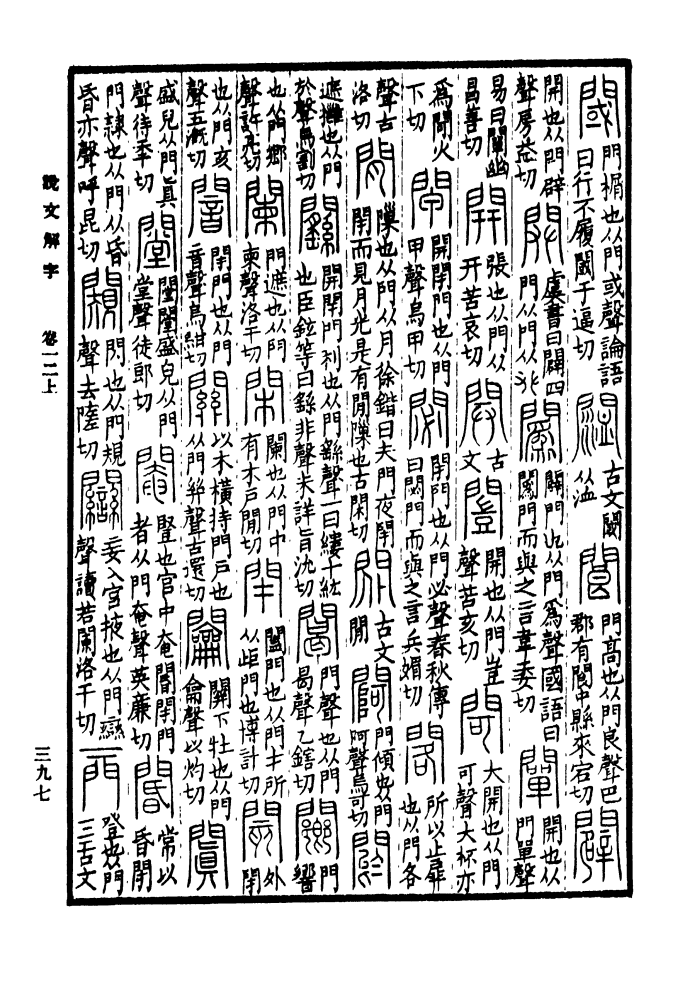 閾門榍也从門或聲論語曰行不履閾于逼切𨵨古文閾从洫閬門高也从門良聲巴郡有閬中縣來宕切闢
開也从門辟聲房益切𨳿虞書曰闢四門从門从𠬜䦱闢門也从門爲聲國語曰䦱門而與之言韋委切闡開也从門單聲
易曰闡幽昌善切開張也从門从幵苦哀切𨳡古文闓開也从門豈聲苦亥切閜大開也从門可聲大杯亦
爲閜火下切閘開閉門也从門甲聲烏甲切閟閉門也从門必聲春秋傳曰閟門而與之言兵媚切閣所以止扉也从門各
聲古洛切閒隟也从門从月徐鍇曰夫門夜閉閉而見月光是有閒隟也古閑切𨳢古文閒䦪門傾也从門阿聲烏可切閼
遮攤也从門於聲烏割切𨷹開閉門利也从門繇聲一曰縷十紘也臣鉉等曰繇非聲未詳旨沇切𨶯門聲也从門曷聲乙鎋切闀門響
也从門鄉聲許亮切闌門遮也从門柬聲洛干切閑闌也从門中有木戶閒切閉闔門也从門才所以歫門也博計切閡外閉
也从門亥聲五溉切闇閉門也从門音聲烏紺切關以木橫持門戶也从門𢇇聲古還切𨷲關下牡也从門龠聲以灼切闐
盛皃从門眞聲待季切闛闛闛盛皃从門堂聲徒郎切閹豎也宮中奄閽閉門者从門奄聲英廉切閽常以昏閉
門隸也从門从昏昏亦聲呼昆切闚閃也从門規聲去隓切𨷻妄入宮掖也从門䜌聲讀若闌洛干切𨳇登也从門二古文
說文解字 卷一二上
三九七